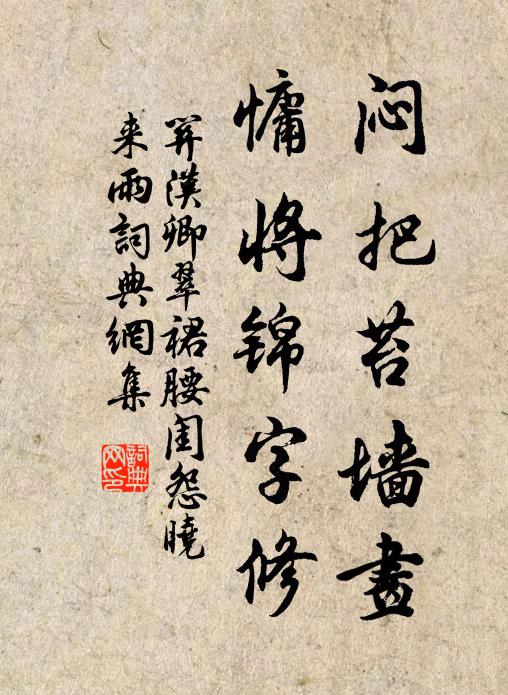 闷把苔墙畫
慵將锦字修
关漢卿翠裙腰闺怨曉
来雨詞典網集
詞典
网印